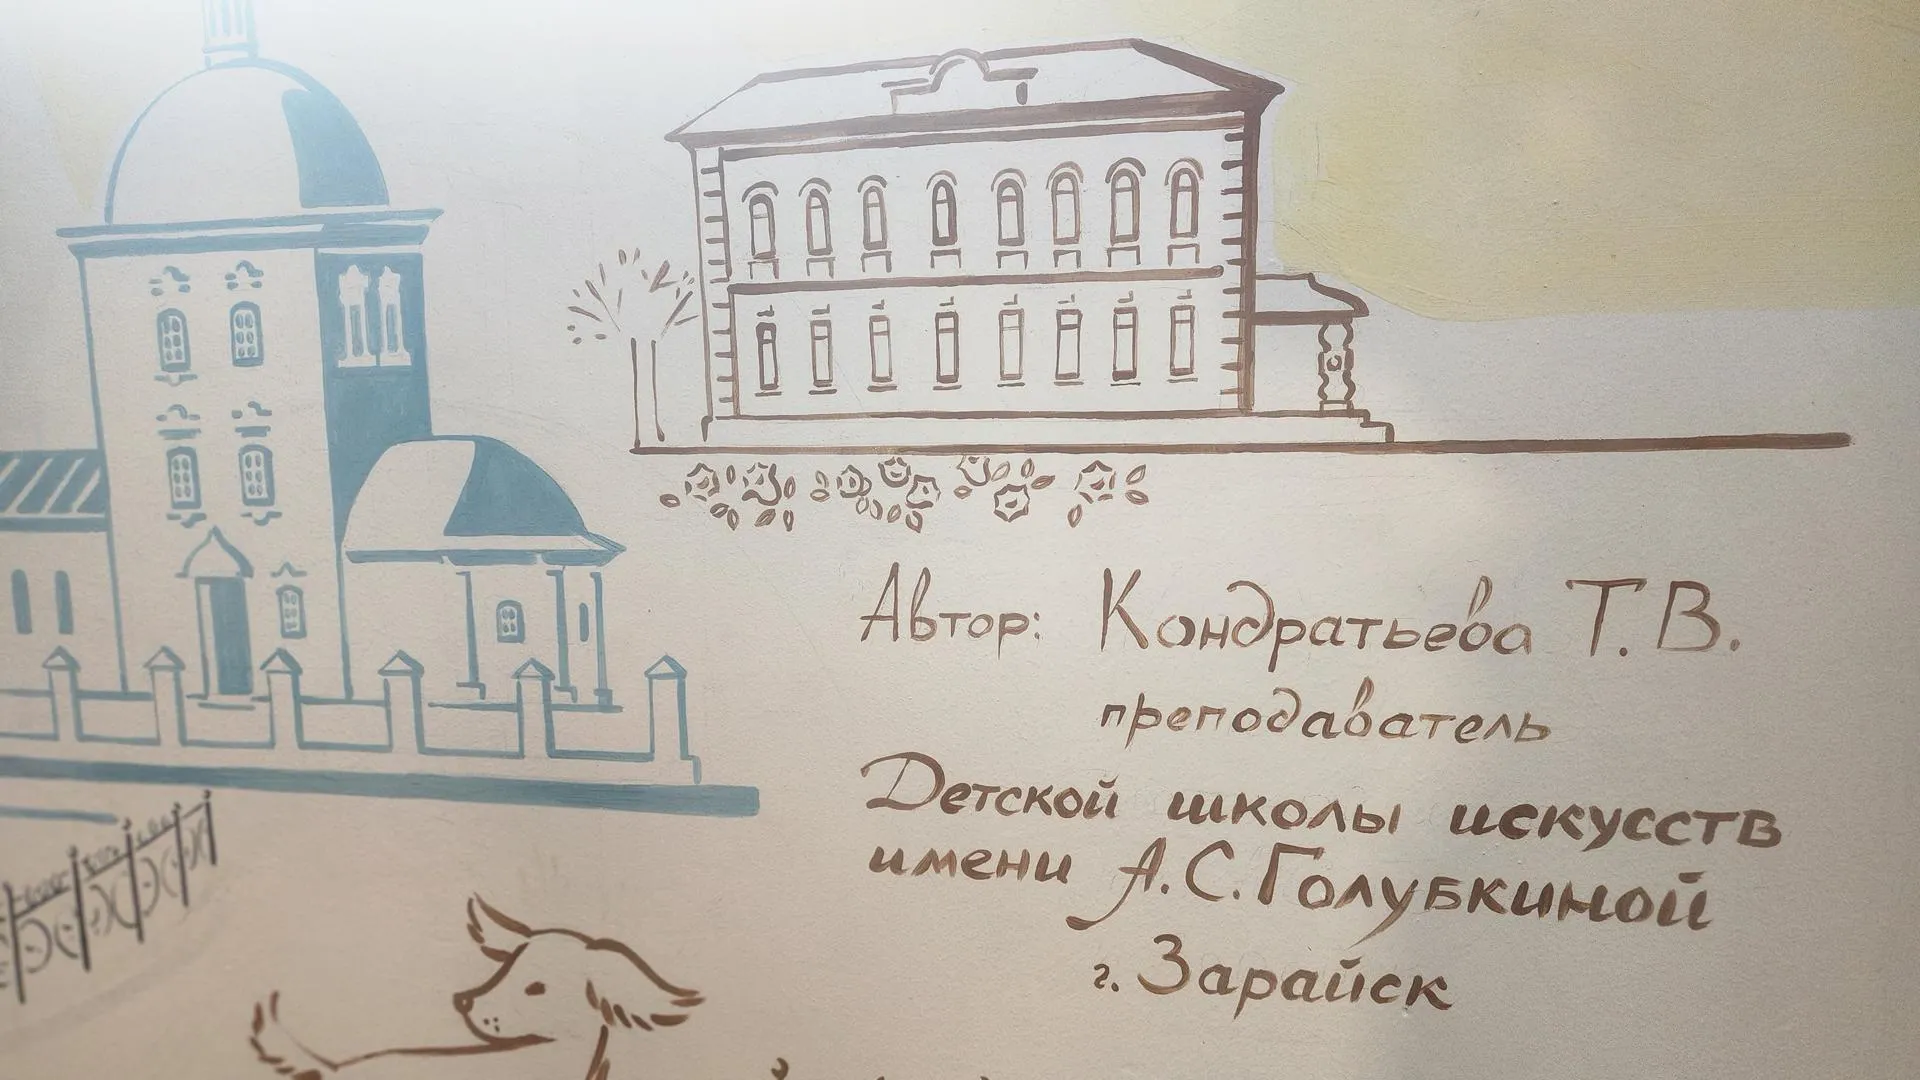 Автор: Кондратьева Т.В.
преподаватель
Детской школы искусств
имени А.С.Голубкиной
г. Зарайск